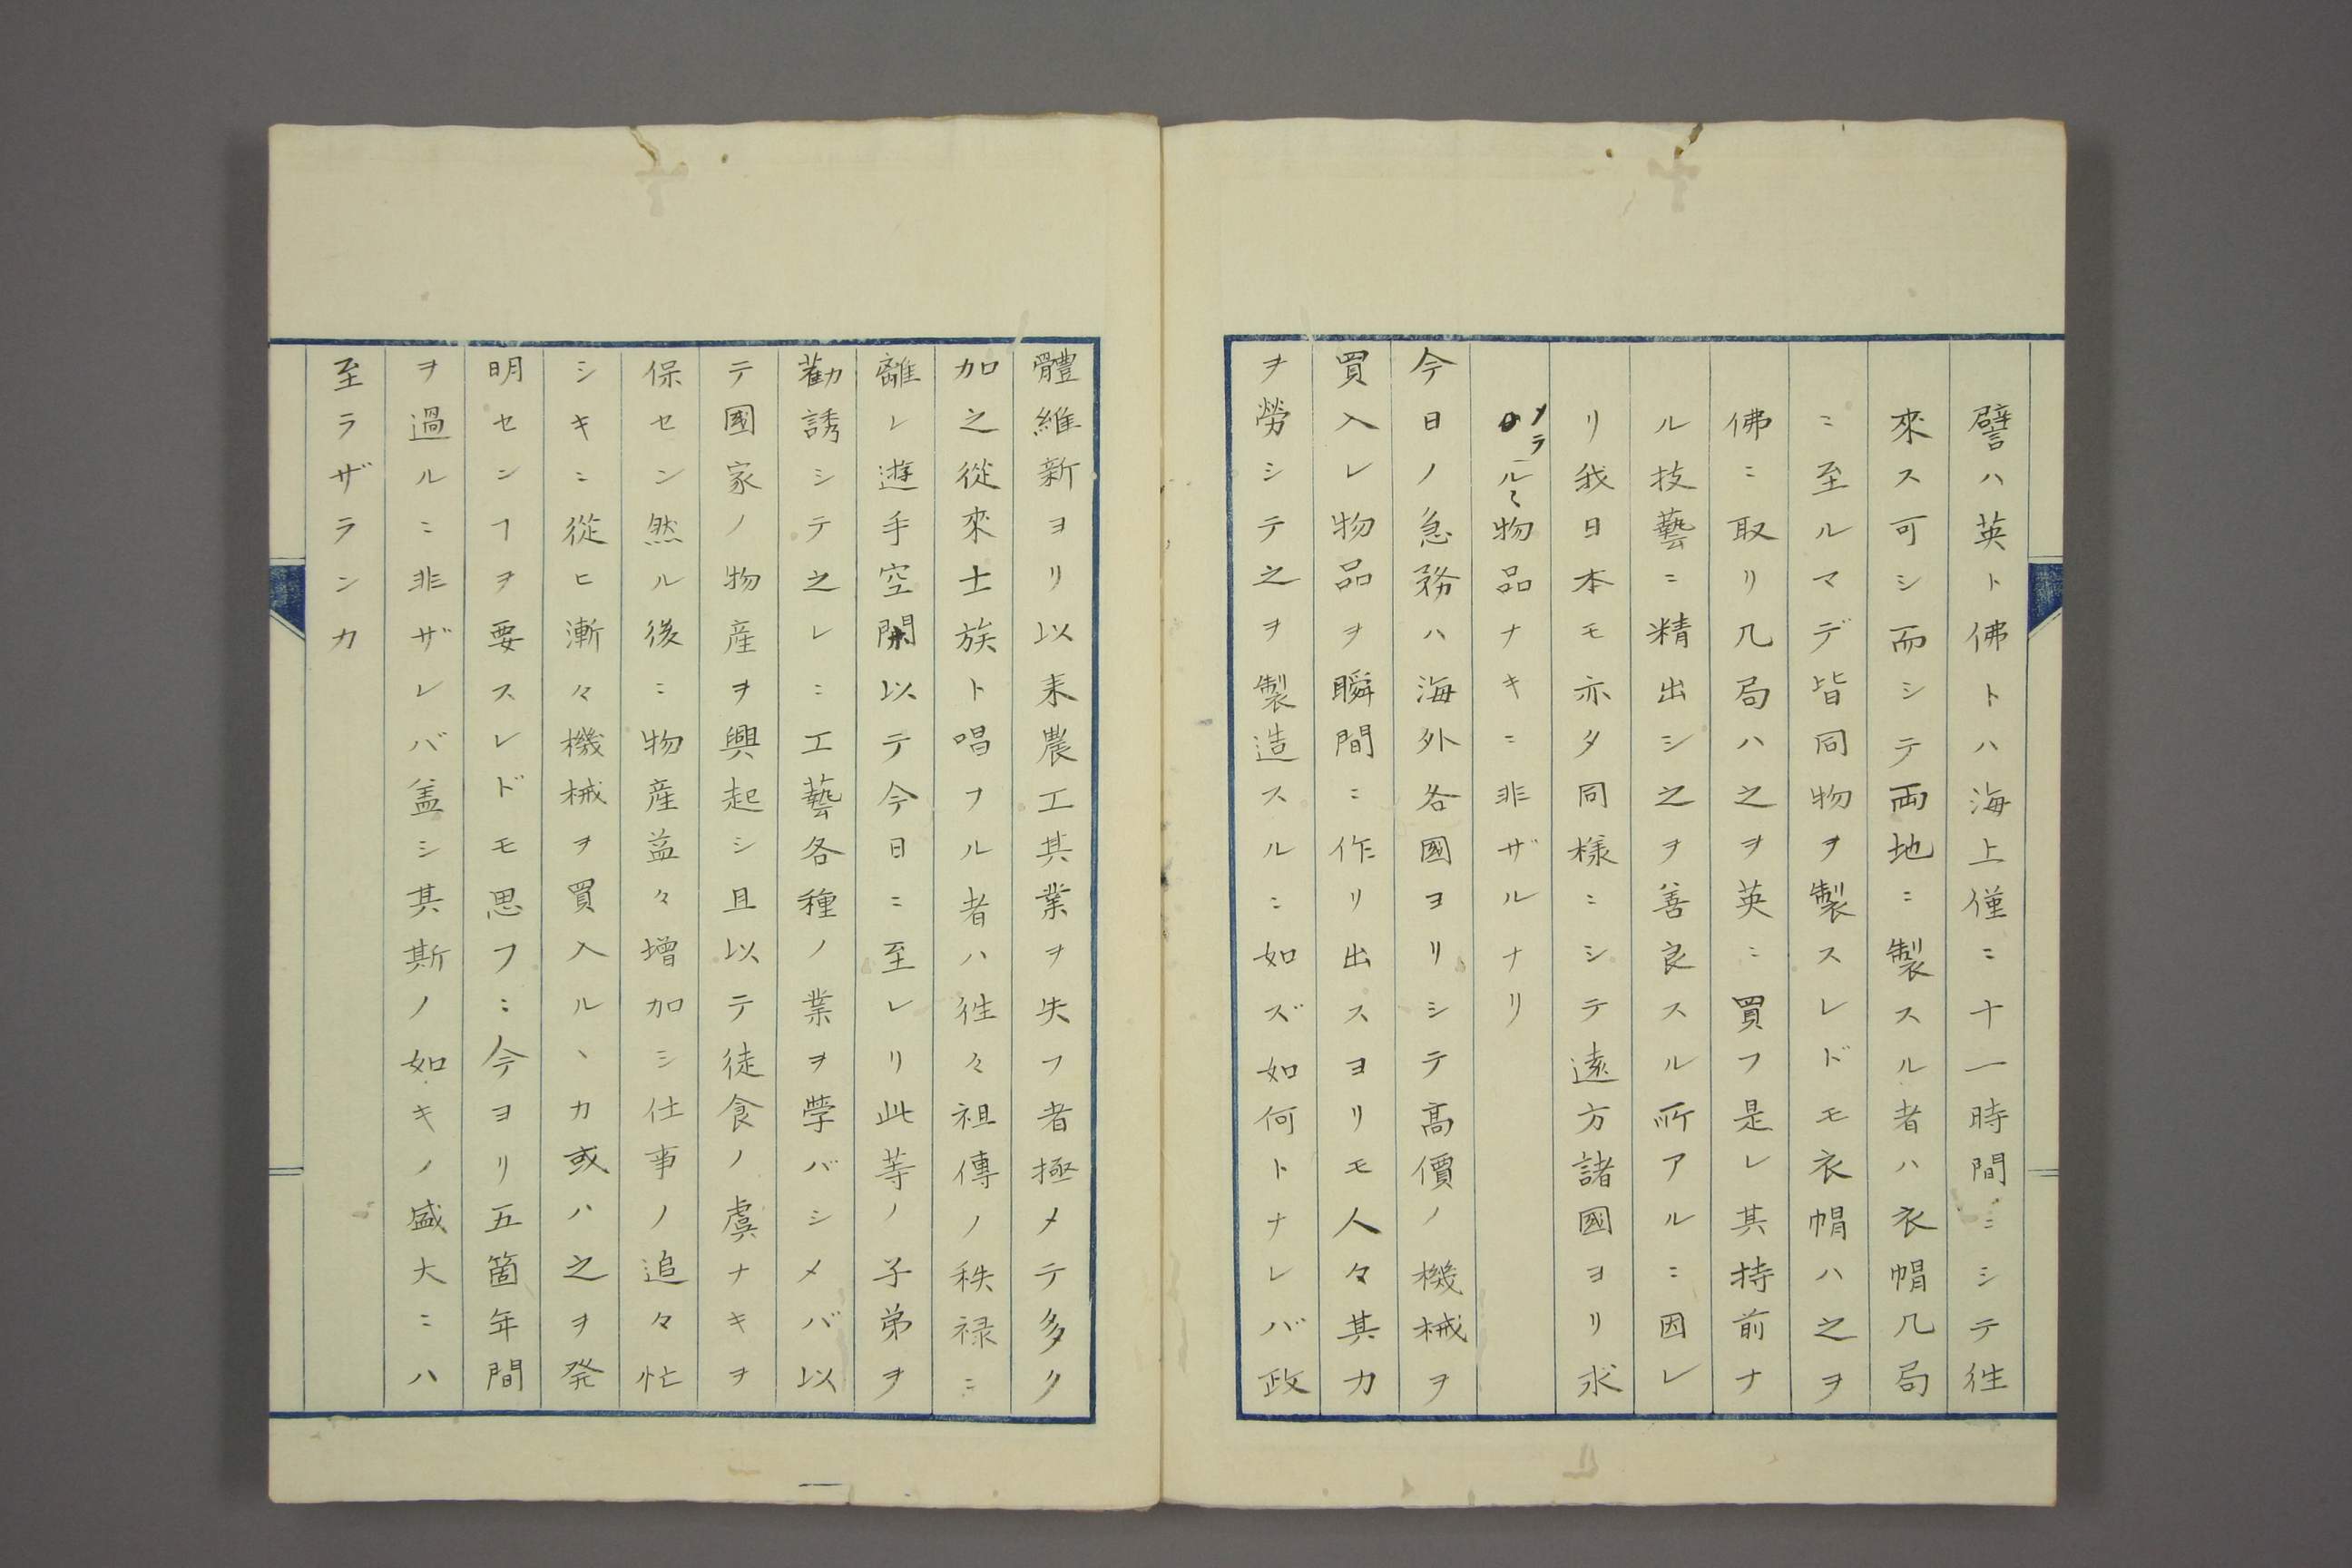 譬ハ英ト佛トハ海上僅ニ十一時間ニシテ徃
來ス可シ而シテ両地ニ製スル者ハ衣帽几局
ニ至ルマデ皆同物ヲ製スレドモ衣帽ハ之ヲ
佛ニ取リ几局ハ之ヲ英ニ買フ是レ其持前ナ
ル技藝ニ精出シ之ヲ善良スル所アルニ因レ
リ我日本モ亦タ同様ニシテ遠方諸國ヨリ求
メラルヽ物品ナキニ非ザルナリ
今日ノ急務ハ海外各國ヨリシテ髙價ノ機械ヲ
買入レ物品ヲ瞬間ニ作リ出スヨリモ人々其力
ヲ勞シテ之ヲ製造スルニ如ズ如何トナレバ政
體維新ヨリ以耒農工其業ヲ失フ者極メテ多ク
加之從來士族ト唱フル者ハ徃々祖傳ノ秩禄ニ
離レ遊手空閑以テ今日ニ至レリ此等ノ子弟ヲ
勸誘シテ之レニ工藝各種ノ業ヲ學バシメバ以
テ國家ノ物産ヲ興起シ且以テ徒食ノ虞ナキヲ
保セン然ル後ニ物産益々增加シ仕事ノ追々忙
シキニ從ヒ漸々機械ヲ買入ルヽカ或ハ之ヲ発
明センヿヲ要スレドモ思フニ今ヨリ五箇年間
ヲ過ルニ非ザレバ盖シ其斯ノ如キノ盛大ニハ
至ラザランカ